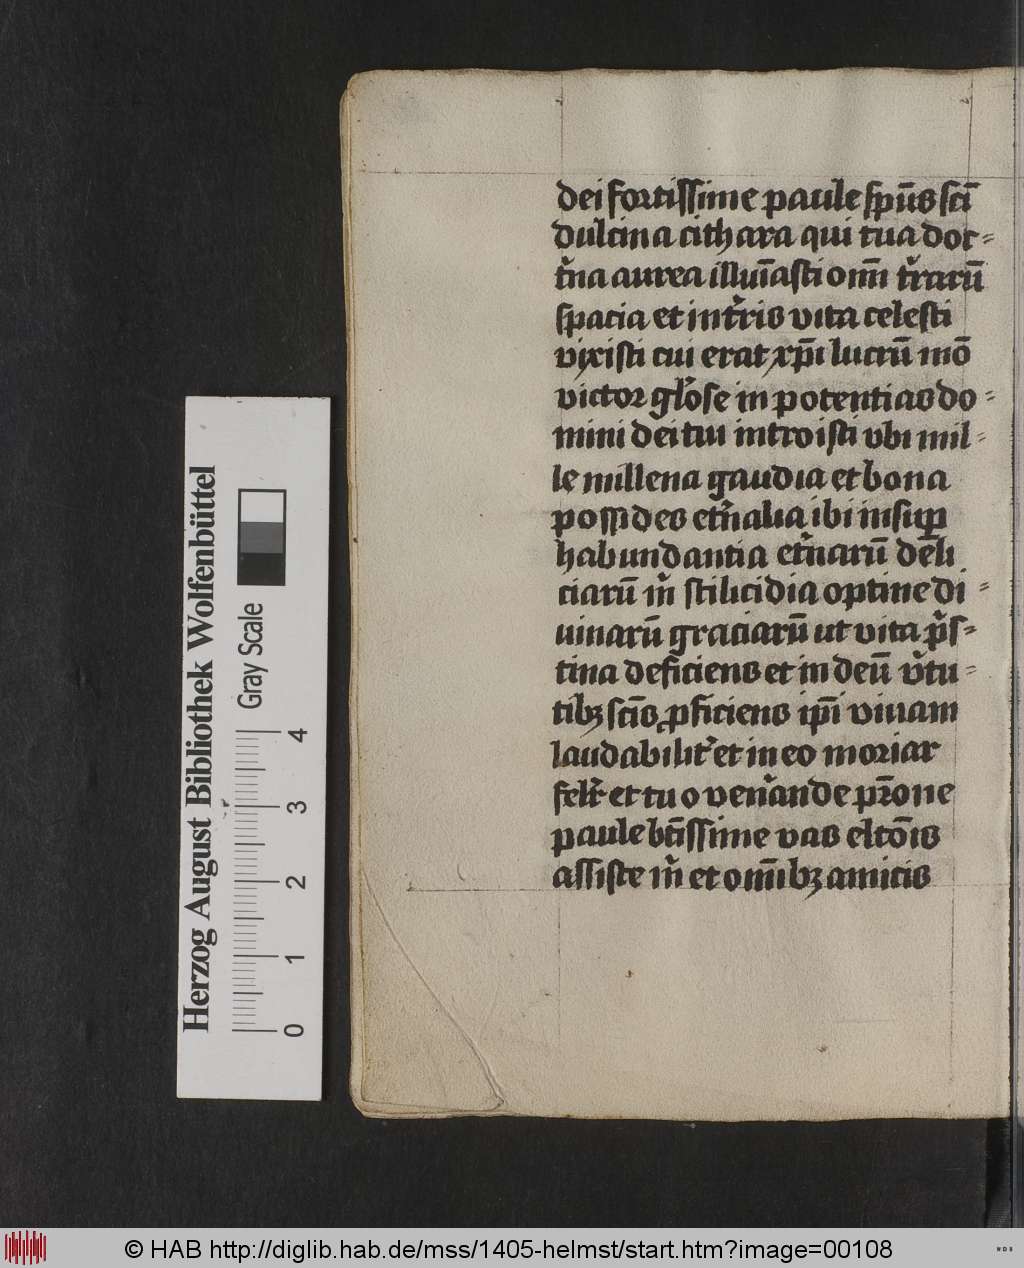 dei fortissime paule sp̄us sc̄i
dulcina cithara qui tua doc-
t̓na aurea illuīasti om̄i t̓rarū
spacia et int̓ris vita celesti
vixisti cui erat xp̄i lucrū mō
victor gl̓ose in potentias do-
mini dei tui introisti vbi mil-
le millena gaudia et bona
possides et̓nalia ibi insuꝑ
habundantia et̓narū dēli
ciarū m̓ stilicidia optine di-
uinarū graciarū ut vita p̓s-
tina deficiens et in deū v̓tu-
tibꝫ sc̄is ꝓficiens ip̄i viuam
laudabilit̓ et in eo moriar
felit̓ et tu o ven̓ande pr̄one
paule bt̄issime vas eltōis
assiste m̓ et om̄ibꝫ amicis
Herzog August Bibliothek Wolfenbüttel
Gray Scale
0 1 2 3 4
© HAB http://diglib.hab.de/mss/1405-helmst/start.htm?image=00108